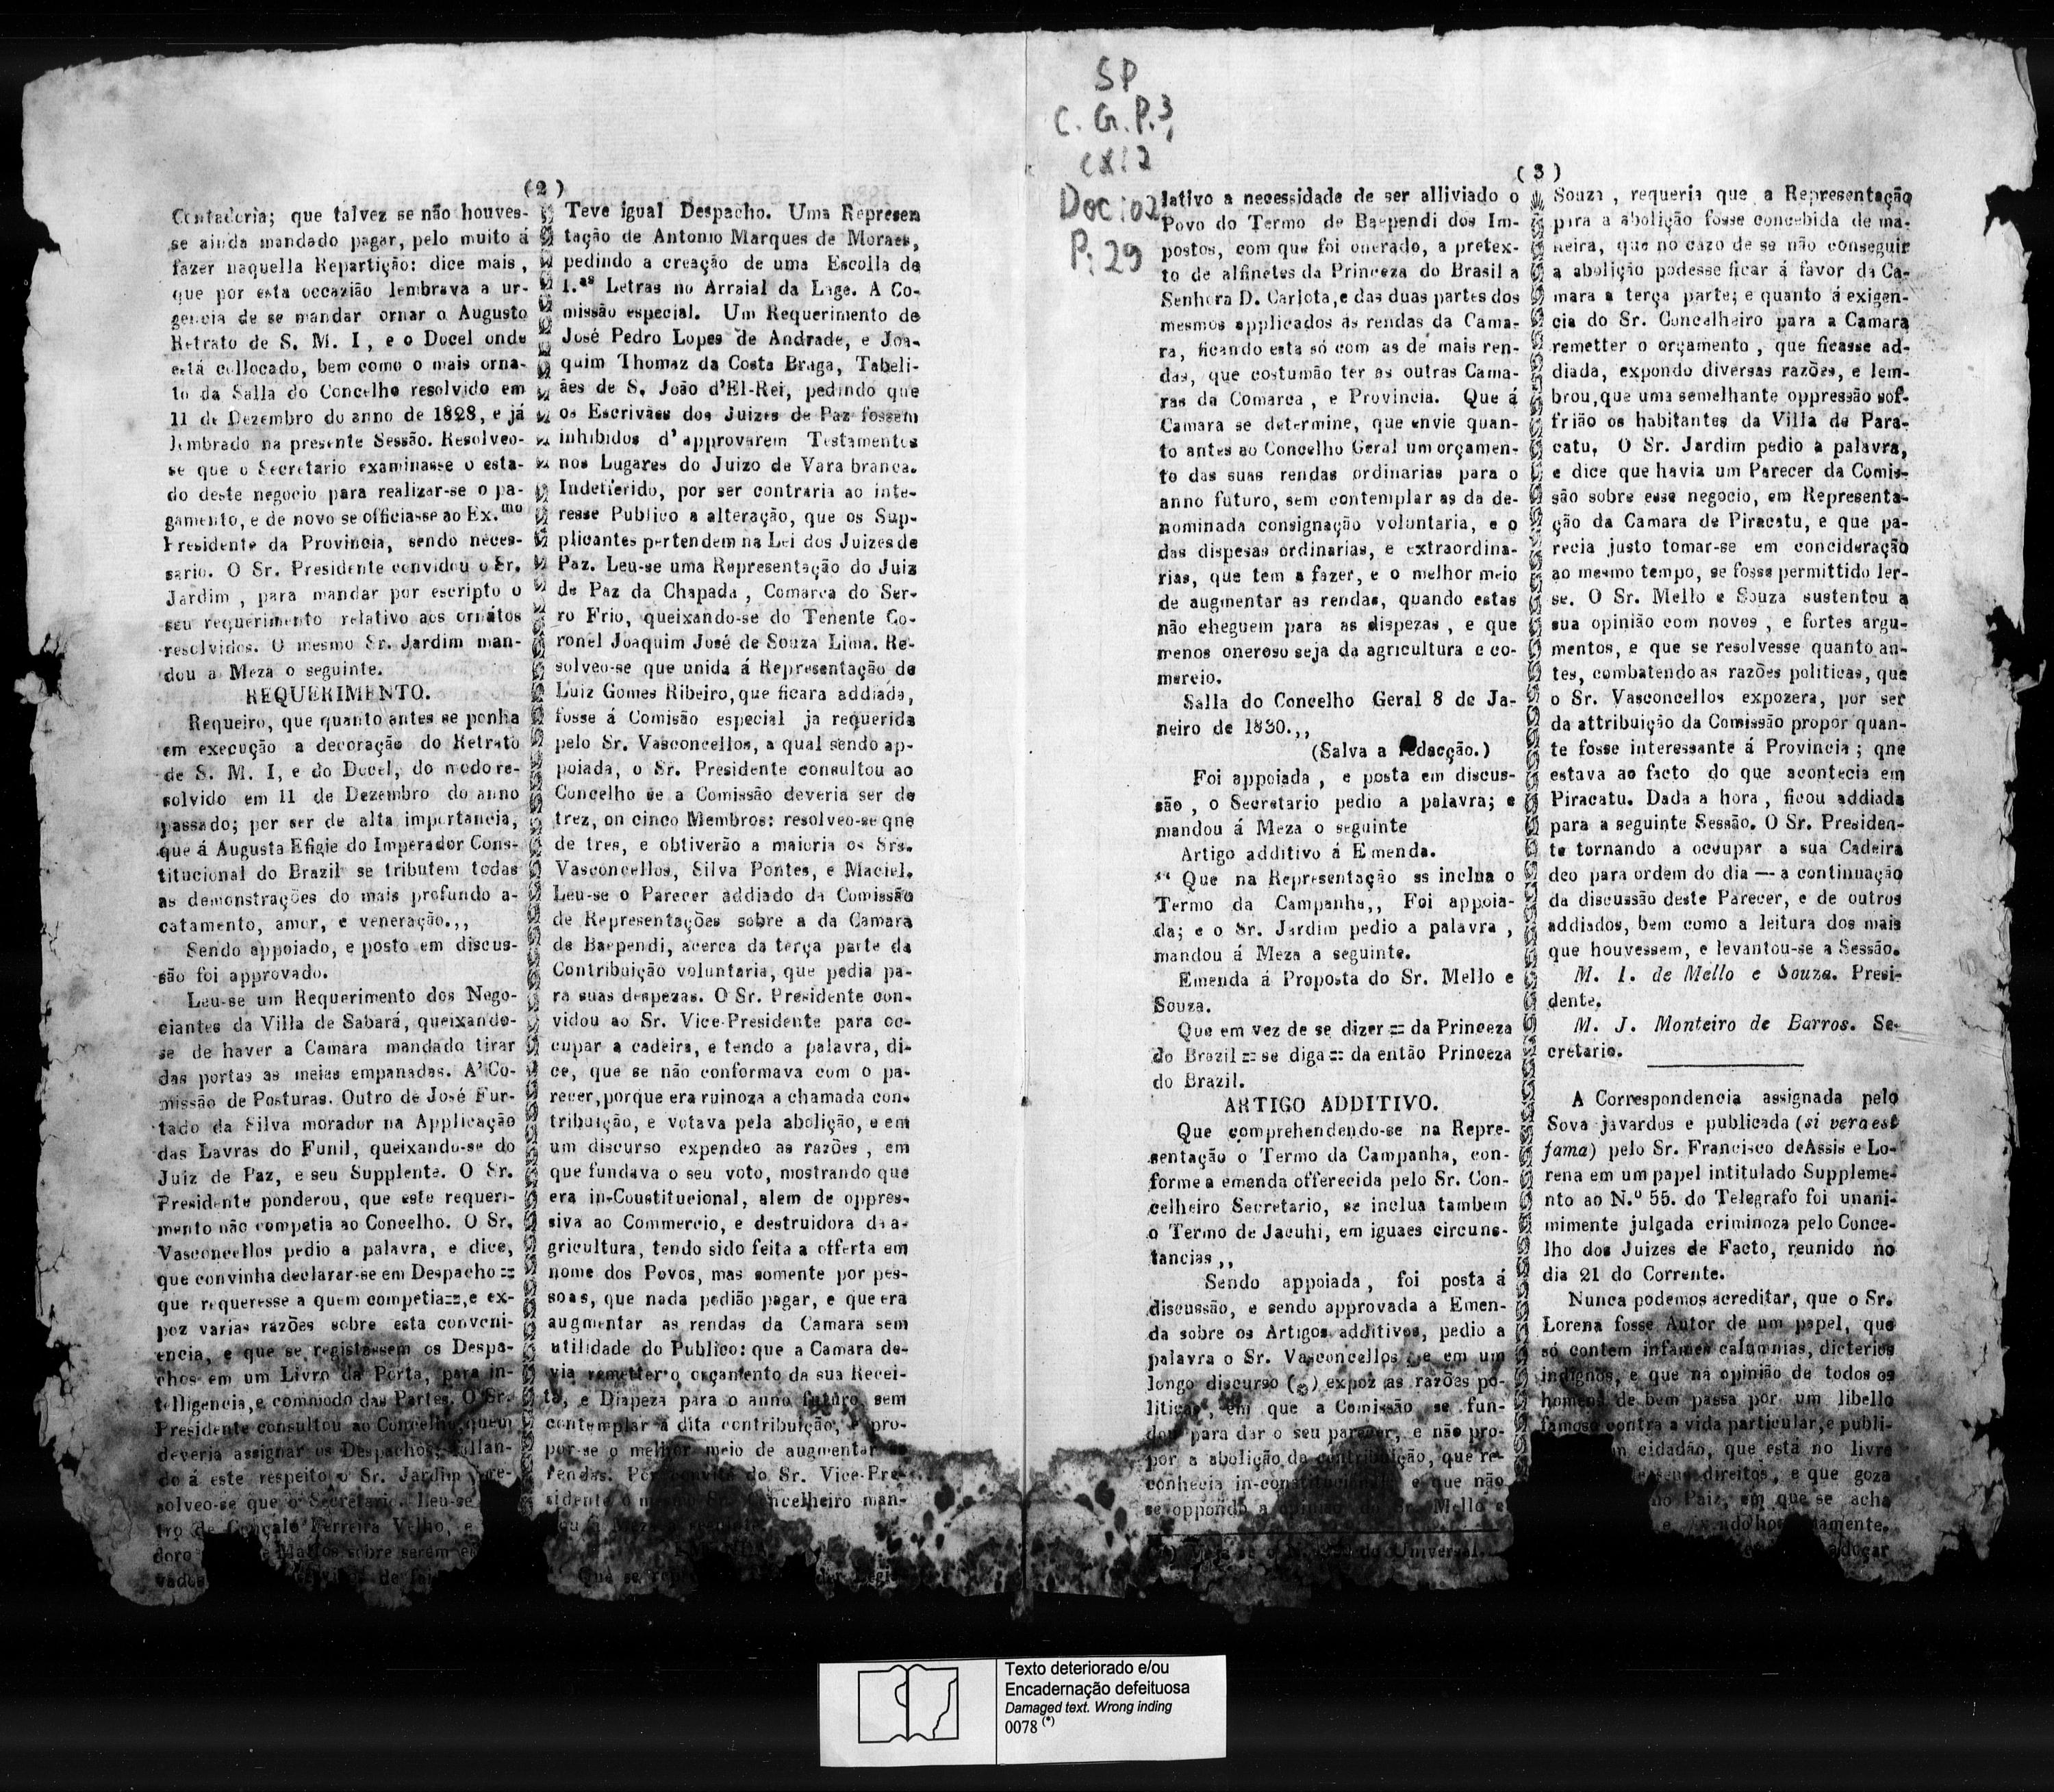 (2)
Contadoria; que talvez se não houves-
se ainda mandado pagar, pelo muito á
fazer naquella Repartição: dice mais,
que por esta occazião lembrava a ur-
gencia de se mandar ornar o Augusto
Retrato de S. M. I, e o Docel onde
está collocado, bem como o mais orna-
to da Salla do Concelho resolvido em
11 de Dezembro do anno de 1828, e já
lembrado na presente Sessão. Resolveo-
se que o Secretario examinasse o esta-
do deste negocio para realizar-se o pa-
gamento, e de novo se officiasse ao Ex.mo
Presidente da Provincia, sendo neces-
sario. O Sr. Presidente convidou o Sr.
Jardim, para mandar por escripto o
seu requerimento relativo aos ornatos
resolvidos. O mesmo Sr. Jardim man-
dou a Meza o seguinte.
REQUERIMENTO.
Requeiro, que quanto antes se ponha
em execução a decoração do Retrato
de S. M. I, e do Docel, do modo re-
solvido em 11 de Dezembro do anno
passado; por ser de alta importancia,
que á Augusta Efigie do Imperador Cons-
titucional do Brazil se tributem todas
as demonstrações do mais profundo a-
catamento, amor, e veneração.,,
Sendo appoiado, e posto em discus-
são foi approvado.
Leu-se um Requerimento dos Nego-
ciantes da Villa de Sabará, queixando-
se de haver a Camara mandado tirar
das portas as meias empanadas. A' Co-
missão de Posturas. Outro de José Fur-
tado da Silva morador na Applicação
das Lavras do Funil, queixando-se do
Juiz de Paz, e seu Supplente. O Sr.
Presidente ponderou, que este requeri-
mento não competia ao Concelho. O Sr.
Vasconcellos pedio a palavra, e dice,
que convinha declarar-se em Despacho =
que requeresse a quem competia=, e ex-
poz varias razões sobre esta conveni-
encia, e que se registassem os Despa-
chos em um Livro da Porta, para in-
telligencia, e commodo das Partes. O Sr.
Presidente consultou ao Concelho, quem
deveria assignar os Despachos; fallan-
do á este respeito o Sr. Jardim re-
solveo-se que o Secretario. Leu-se
tro de Gonçalo Ferreira Velho, e
doro Mattos sobre serem
vados
Teve igual Despacho. Uma Represen
tação de Antonio Marques de Moraes,
pedindo a creação de uma Escolla de
1.as Letras no Arraial da Lage. A Co-
missão especial. Um Requerimento de
José Pedro Lopes de Andrade, e Joa-
quim Thomaz da Costa Braga, Tabeli-
ães de S. João d'El-Rei, pedindo que
os Escrivães dos Juizes de Paz fossem
inhibidos d'approvarem Testamentos
nos Lugares do Juizo de Vara branca.
Indeferido, por ser contraria ao inte-
resse Publico a alteração, que os Sup-
plicantes pertendem na Lei dos Juizes de
Paz. Leu-se uma Representação do Juiz
de Paz da Chapada, Comarca do Ser-
ro Frio, queixando-se do Tenente Co-
ronel Joaquim José de Souza Lima. Re-
solveo-se que unida á Representação de
Luiz Gomes Ribeiro, que ficara addiada,
fosse á Comisão especial ja requerida
pelo Sr. Vasconcellos, a qual sendo ap-
poiada, o Sr. Presidente consultou ao
Concelho se a Comissão deveria ser de
trez, on cinco Membros: resolveo-se qne
de tres, e obtiverão a maioria os Srs.
Vasconcellos, Silva Pontes, e Maciel.
Leu-se o Parecer addiado da Comissão
de Representações sobre a da Camara
de Baependi, acerca da terça parte da
Contribuição voluntaria, que pedia pa-
ra suas despezas. O Sr. Presidente con-
vidou ao Sr. Vice-Presidente para oc-
cupar a cadeira, e tendo a palavra, di-
ce, que se não conformava com o pa-
recer, porque era ruinoza a chamada con-
tribuição, e votava pela abolição, e em
um discurso expendeo as razões, em
que fundava o seu voto, mostrando que
era in-Coustitucional, alem de oppres-
siva ao Commercio, e destruidora da a-
gricultura, tendo sido feita a offerta em
nome dos Povos, mas somente por pes-
soas, que nada podião pagar, e que era
augmentar as rendas da Camara sem
utilidade do Publico: que a Camara de-
via remetter o orçamento da sua Recei-
ta, e Dispeza para o anno futuro sem
contemplar a dita contribuição, e pro-
por-se o melhor meio de augmentar as
rendas. Por convite do Sr. Vice-Pre-
sidente o mesmo Sr. Concelheiro man-
dou á Meza
Que se
SP
C. G. P. 3,
cx: 2
Doc: 02
P: 29
(3)
lativo a necessidade de ser alliviado o
Povo do Termo de Baependi dos Im-
postos, com que foi onerado, a pretex-
to de alfinetes da Princeza do Brasil a
Senhora D. Carlota, e das duas partes dos
mesmos applicados ás rendas da Cama-
ra, ficando esta só com as de mais ren-
das, que costumão ter as outras Cama-
ras da Comarca, e Provincia. Que á
Camara se determine, que envie quan-
to antes ao Concelho Geral um orçamen-
to das suas rendas ordinarias para o
anno futuro, sem contemplar as da de-
nominada consignação voluntaria, e o
das dispesas ordinarias, e extraordina-
rias, que tem a fazer, e o melhor meio
de augmentar as rendas, quando estas
não cheguem para as dispezas, e que
menos oneroso seja da agricultura e co-
mercio.
Salla do Concelho Geral 8 de Ja-
neiro de 1830.,,
(Salva a redacção.)
Foi appoiada, e posta em discus-
são, o Secretario pedio a palavra; e
mandou á Meza o seguinte
Artigo additivo á Emenda.
“ Que na Representação ss inclua o
Termo da Campanha,, Foi appoia-
da; e o Sr. Jardim pedio a palavra,
mandou á Meza a seguinte.
Emenda á Proposta do Sr. Mello e
Souza.
Que em vez de se dizer = da Princeza
do Brazil = se diga = da então Princeza
do Brazil.
ARTIGO ADDITIVO.
Que comprehendendo-se na Repre-
sentação o Termo da Campanha, con-
forme a emenda offerecida pelo Sr. Con-
celheiro Secretario, se inclua tambem
o Termo de Jacuhi, em iguaes circuns-
tancias,,
Sendo appoiada, foi posta á
discussão, e sendo approvada a Emen-
da sobre os Artigos additivos, pedio a
palavra o Sr. Vasconcellos, e em um
longo discurso (*) expoz as razões po-
liticas, em que a Comissão se fun-
dou para dar o seu parecer, e não pro-
por a abolição da contribuição, que re-
conhecia in-constitucional, e que não
se oppondo a opinião do Sr. Mello e
do Universal.
Souza, requeria que a Representação
para a abolição fosse concebida de ma-
neira, que no cazo de se não conseguir
a abolição podesse ficar á favor da Ca-
mara a terça parte; e quanto á exigen-
cia do Sr. Concelheiro para a Camara
remetter o orçamento, que ficasse ad-
diada, expondo diversas razões, e lem-
brou, que uma semelhante oppressão sof-
frião os habitantes da Villa de Para-
catu, O Sr. Jardim pedio a palavra,
e dice que havia um Parecer da Comis-
são sobre esse negocio, em Representa-
ção da Camara de Piracatu, e que pa-
recia justo tomar-se em concideração
ao mesmo tempo, se fosse permittido ler-
se. O Sr. Mello e Souza sustentou a
sua opinião com novos, e fortes argu-
mentos, e que se resolvesse quanto an-
tes, combatendo as razões politicas, que
o Sr. Vasconcellos expozera, por ser
da attribuição da Comissão propôr quan-
te fosse interessante á Provincia; qne
estava ao facto do que acontecia em
Piracatu. Dada a hora, ficou addiada
para a seguinte Sessão. O Sr. Presiden-
te tornando a occupar a sua Cadeira
deo para ordem do dia — a continuação
da discussão deste Parecer, e de outros
addiados, bem como a leitura dos mais
que houvessem, e levantou-se a Sessão.
M. I. de Mello e Souza. Presi-
dente.
M. J. Monteiro de Barros. Se-
cretario.
A Correspondencia assignada pelo
Sova javardos e publicada (si vera est
fama) pelo Sr. Francisco de Assis e Lo-
rena em um papel intitulado Suppleme-
nto ao N.º 55. do Telegrafo foi unani-
mimente julgada criminoza pelo Conce-
lho dos Juizes de Facto, reunido no
dia 21 do Corrente.
Nunca podemos acreditar, que o Sr.
Lorena fosse Autor de um papel, que
só contem infames calumnias, dicterios
indignos, e que na opinião de todos os
homens de bem passa por um libello
famoso contra a vida particular, e publi-
cidadão, que está no livre
seus direitos, e que goza
no Paiz, em que se acha
amente.
adoçar
Texto deteriorado e/ou
Encadernação defeituosa
Damaged text. Wrong inding
0078 (*)